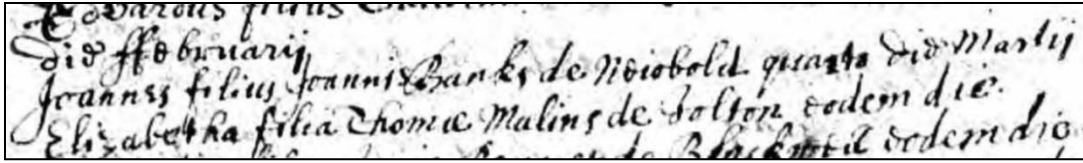 Edvardus filius
die ffebruarij
Joannes filius Joannis Banks de Neiobold quarto die Martij
Elizabetha filia Thomæ Malins de Tolton eodem die.
de Blackwell eodem die